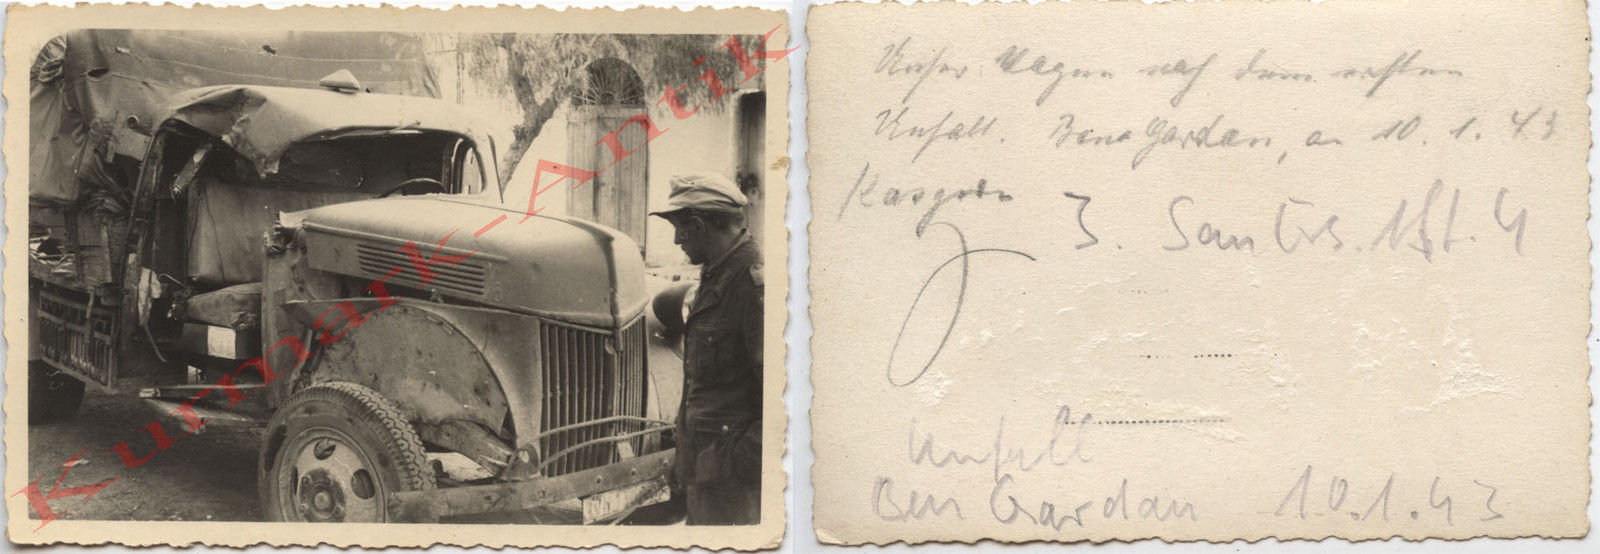 Kurmark-Antik
Unser Wagen nach dem ersten
Unfall. Ben Gardan, am 10.1.43
3. San Ers. Abt. 4
Unfall
Ben Gardan 10.1.43